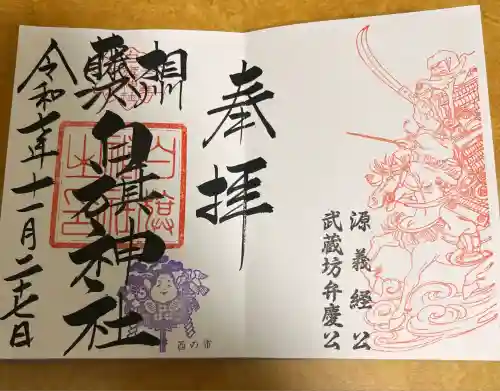 源義經公
武蔵坊弁慶公
奉拝
相州
藤沢
白旗神社
令和七年十一月二十七日
酉の市